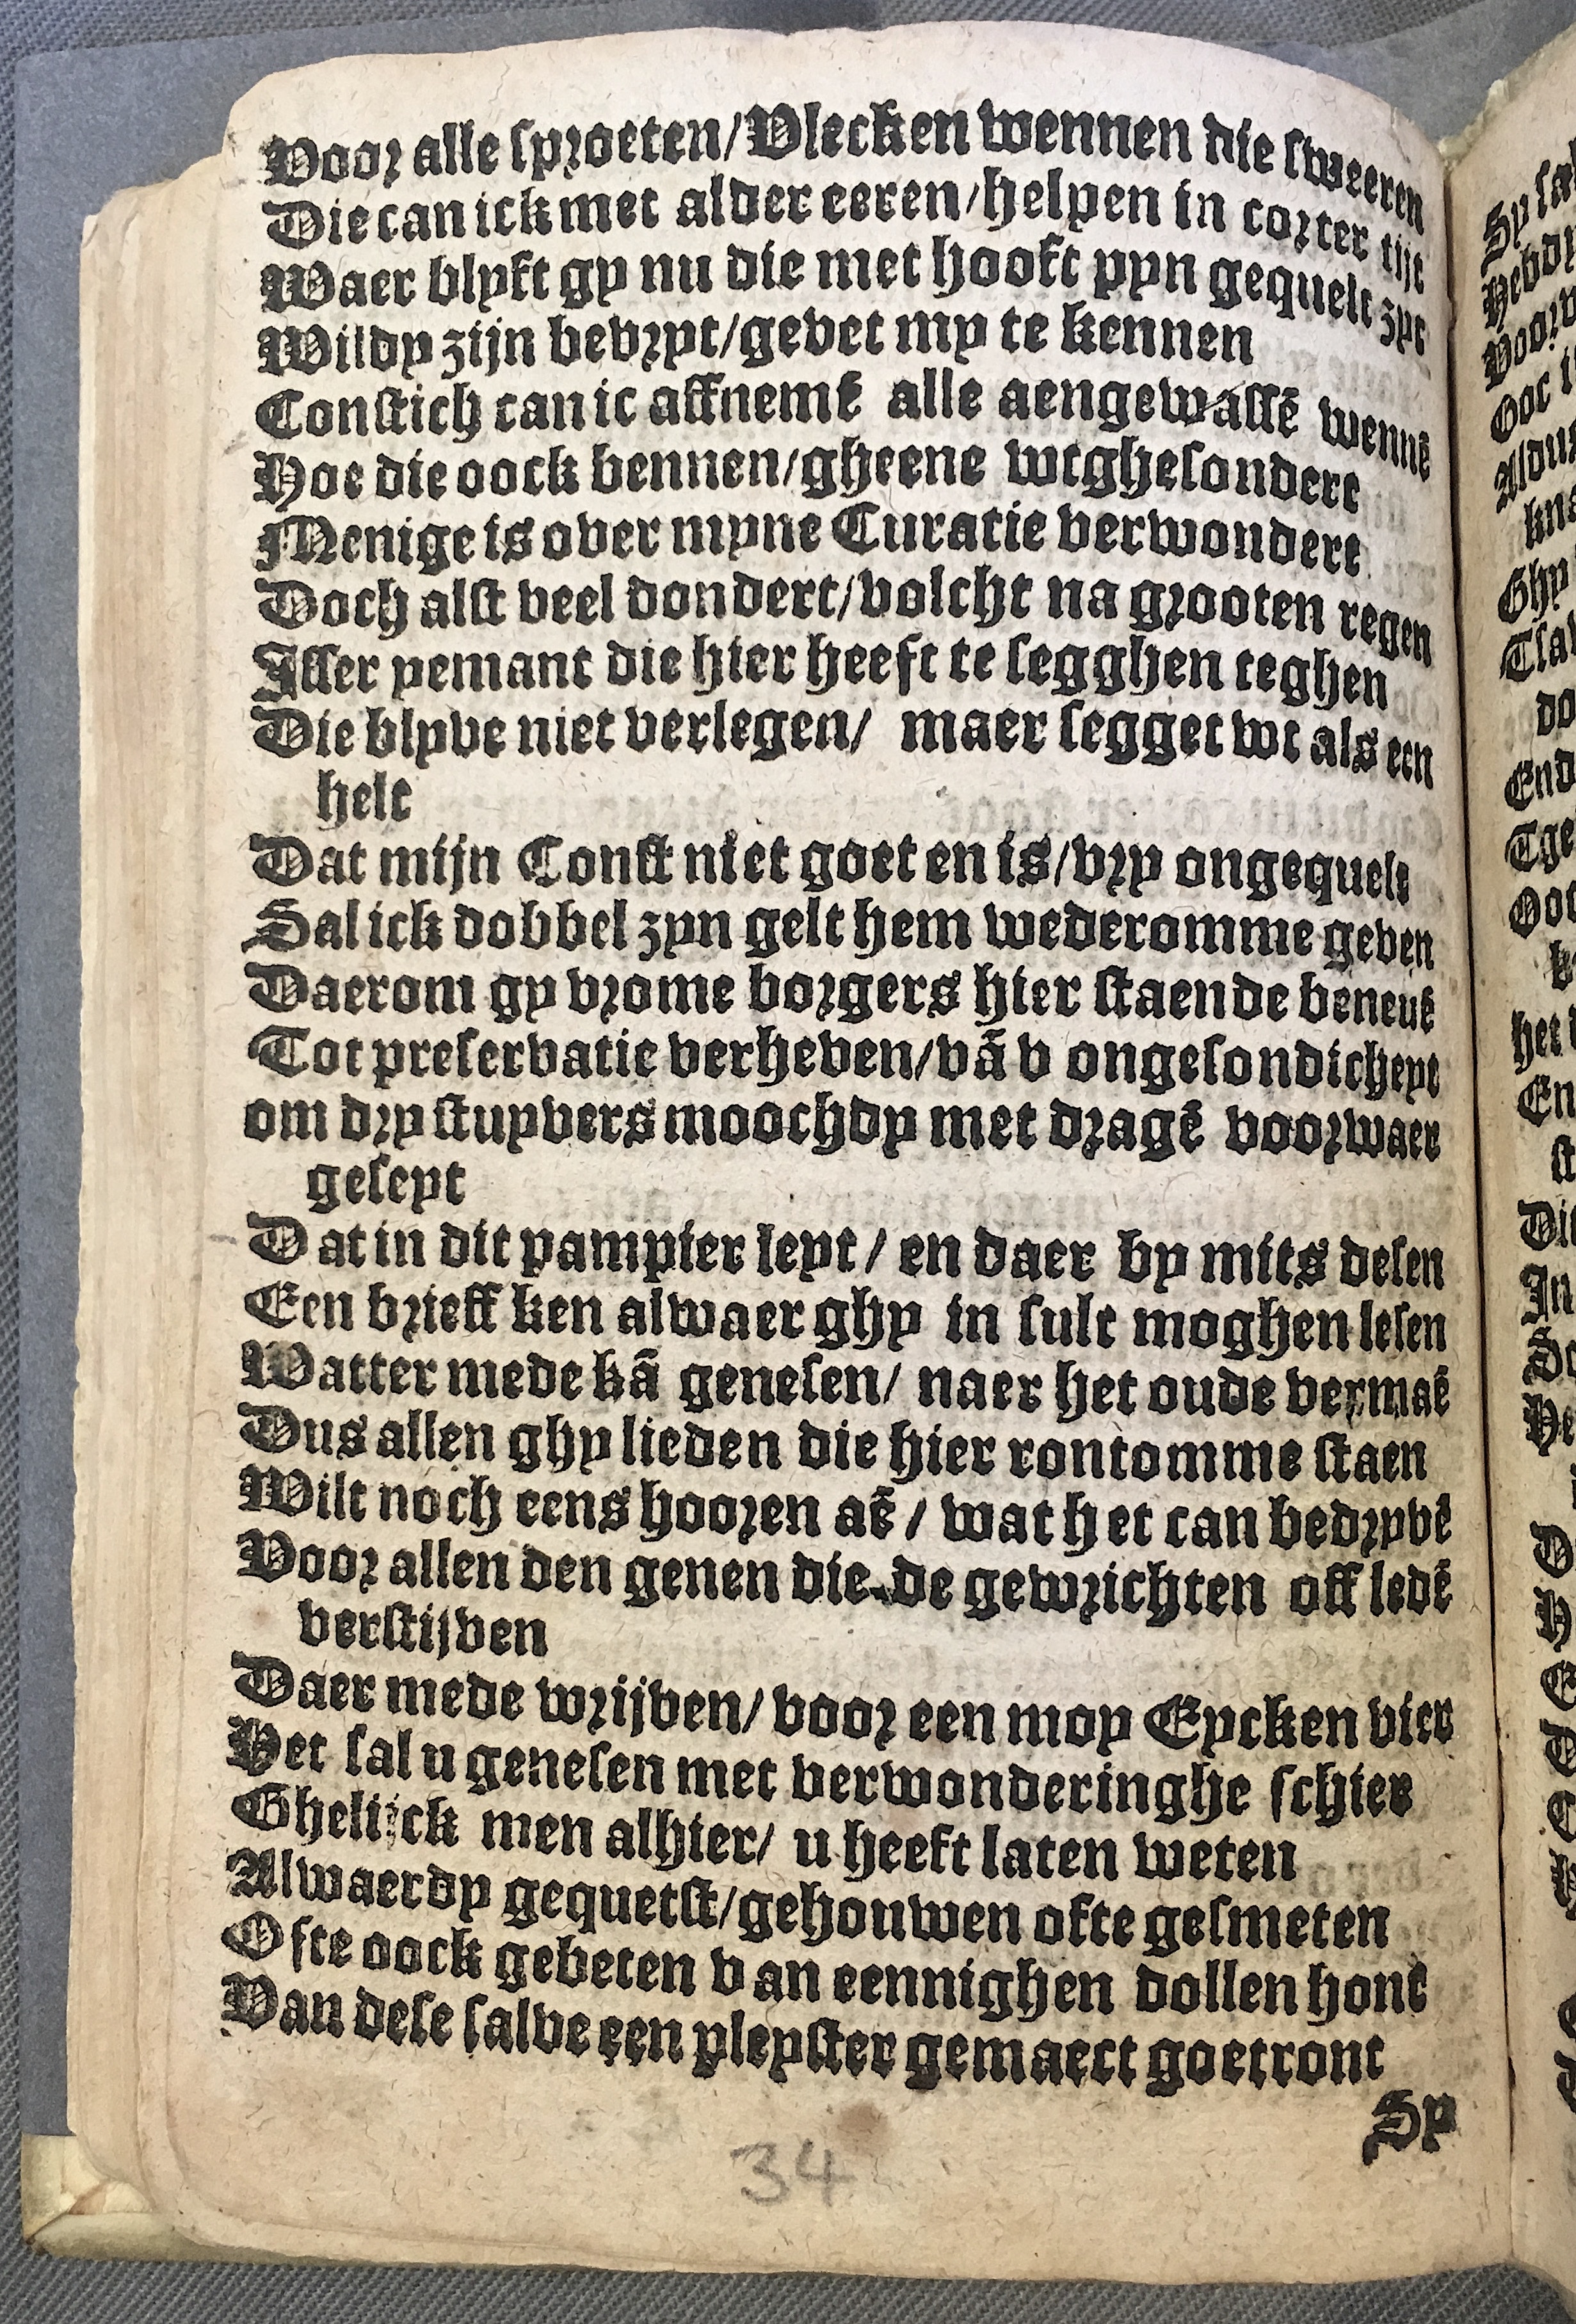 Voor alle sproeten/Vlecken wennen die sweeren
Die can ick met alder eeren/helpen in corter tijt
Waer blyft gy nu die met hooft pyn gequelt zyt
Wildy zijn bevryt/gevet my te kennen
Constich can ic affnemē alle aengewassē wennē
Hoe die oock bennen/gheene wtghesondert
Menige is over myne Curatie verwondert
Doch alst veel dondert/volcht na grooten regen
Isser yemant die hier heeft te segghen teghen
Die blyve niet verlegen/ maer segget wt als een
helt
Dat mijn Const niet goet en is/vry ongequelt
Sal ick dobbel zyn gelt hem wederomme geven
Daerom gy vrome borgers hier staende benevē
Tot preservatie verheven/vā v ongesondicheyt
om dry stuyvers moochdy met dragē voorwaer
geseyt
Dat in dit pampier leyt/ en daer by mits desen
Een brieff ken alwaer ghy in sult moghen lesen
Watter mede kā genesen/ naer het oude vermaē
Dus allen ghy lieden die hier rontomme staen
Wilt noch eens hooren aē/ wat het can bedryvē
Voor allen den genen die de gewrichten off ledē
verstijven
Daer mede wrijven/voor een moy Eycken vier
Het sal u genesen met verwonderinghe schier
Ghelijck men alhier/ u heeft laten weten
Alwaerdy gequetst/gehouwen ofte gesmeten
Ofte oock gebeten van eennighen dollen hont
Van dese salve een pleyster gemaect goet ront
Sy
34